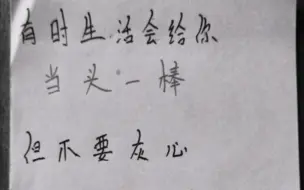 有时生活会给你
当头一棒
但不要灰心